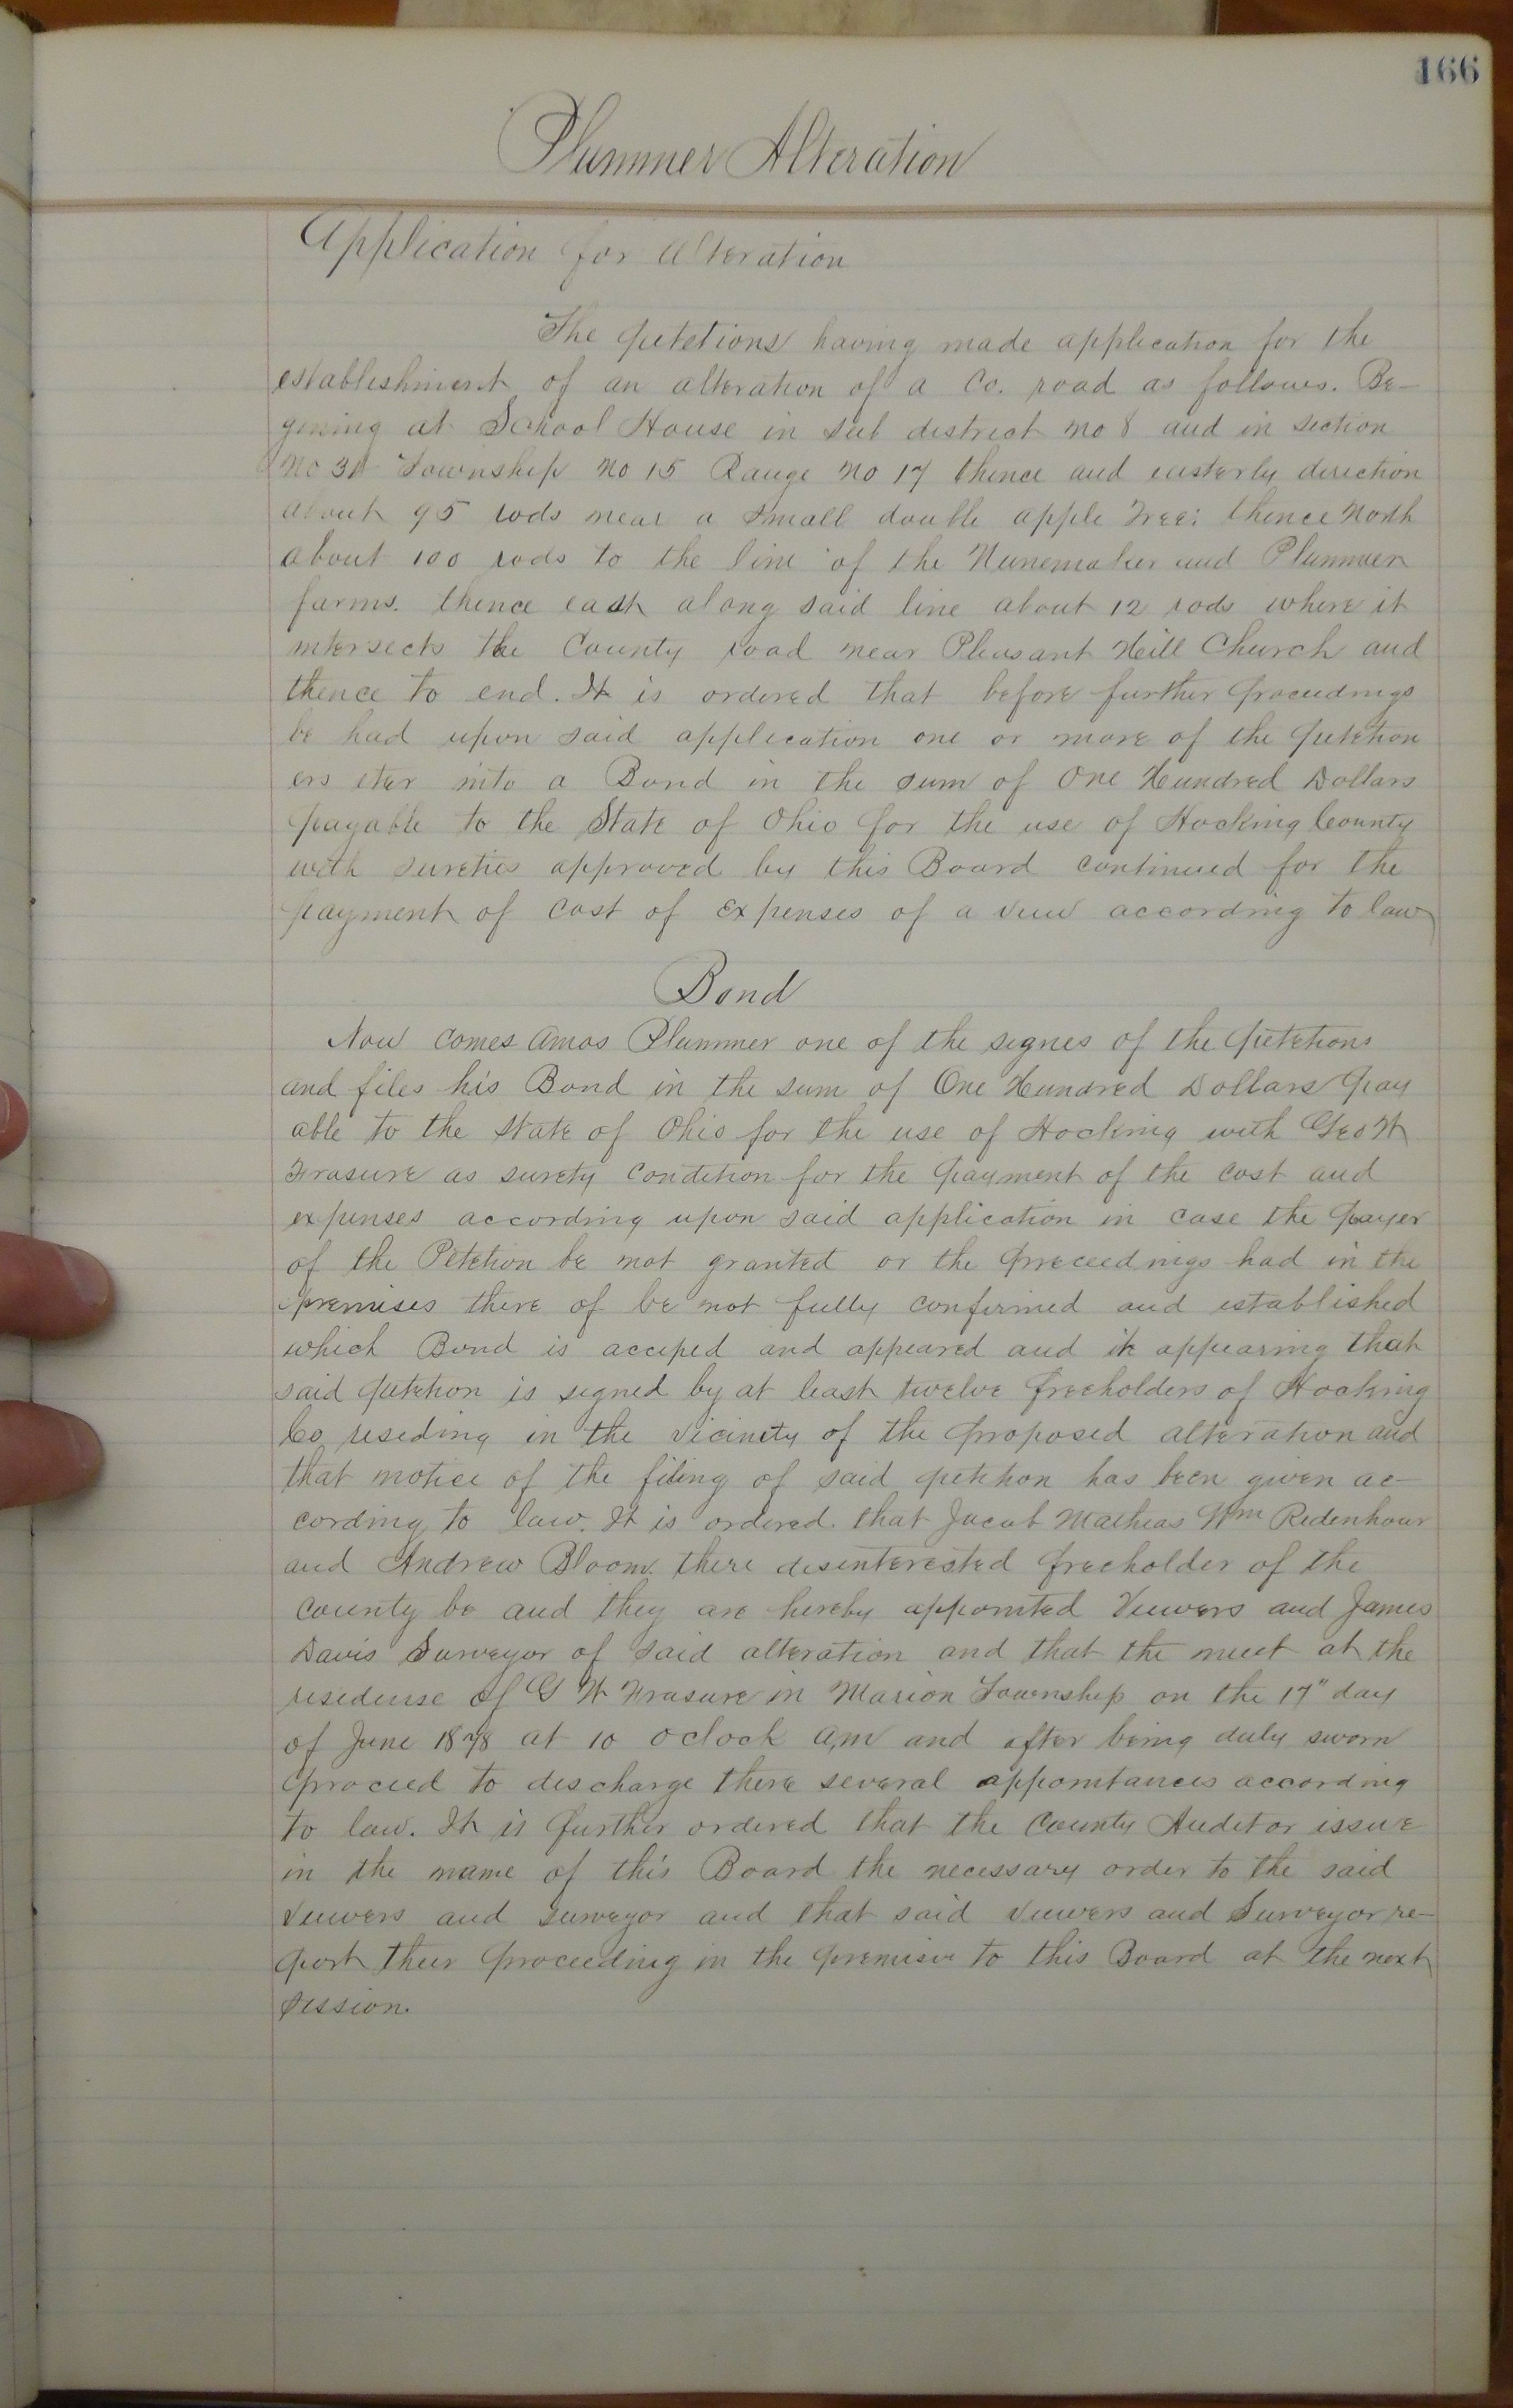 166
Plummer Alteration
Application for alteration
The petetions having made application for the
establishment of an alteration of a Co. road as follows. Be-
gining at School House in sub district no 8 and in section
no Township no 15 Range no 17 thence and easterly direction
about 95 rods near a small double apple Tree: thence North
about 100 rods to the line of the Nunemaker and Plummer
farms. thence east along said line about 12 rods where it
intersects the County road near Pleasant Hill Church and
thence to end. It is ordered that before further proceedings
be had upon said application one or more of the petetion
ers eter into a Bond in the sum of One Hundred Dollars
payable to the State of Ohio for the use of Hocking County
with sureties approved by this Board continued for the
payment of cost of expenses of a view according to law
Bond
Now comes Amos Plummer one of the signes of the petetions
and files his Bond in the sum of One Hundred Dollars pay
able to the State of Ohio for the use of Hocking with Geo W
Frasure as surety condition for the payment of the cost and
expenses according upon said application in case the payer
of the Petetion be not granted or the preceedings had in the
premises there of be not fully confirmed and established
which Bond is acceped and appeared and it appearing that
said petetion is signed by at least twelve freeholders of Hocking
Co reseding in the vicinety of the proposed alteration and
that notice of the filing of said petetion has been given ac-
cording to law. It is ordered that Jacob Mathias Wm Redenhour
and Andrew Bloom there desenterested freeholder of the
county be and they are hereby appointed Viewers and James
Davis Surveyor of said alteration and that the meet at the
resedense of G W Frasure in Marion Township on the 17" day
of June 1878 at 10 oclock a,m and after being duly sworn
proceed to descharge there several appointances according
to law. It is further ordered that the County Auditor issue
in the name of this Board the necessary order to the said
viewers and surveyor and that said viewers and Surveyor re-
port their proceeding in the premises to this Board at the next
session.